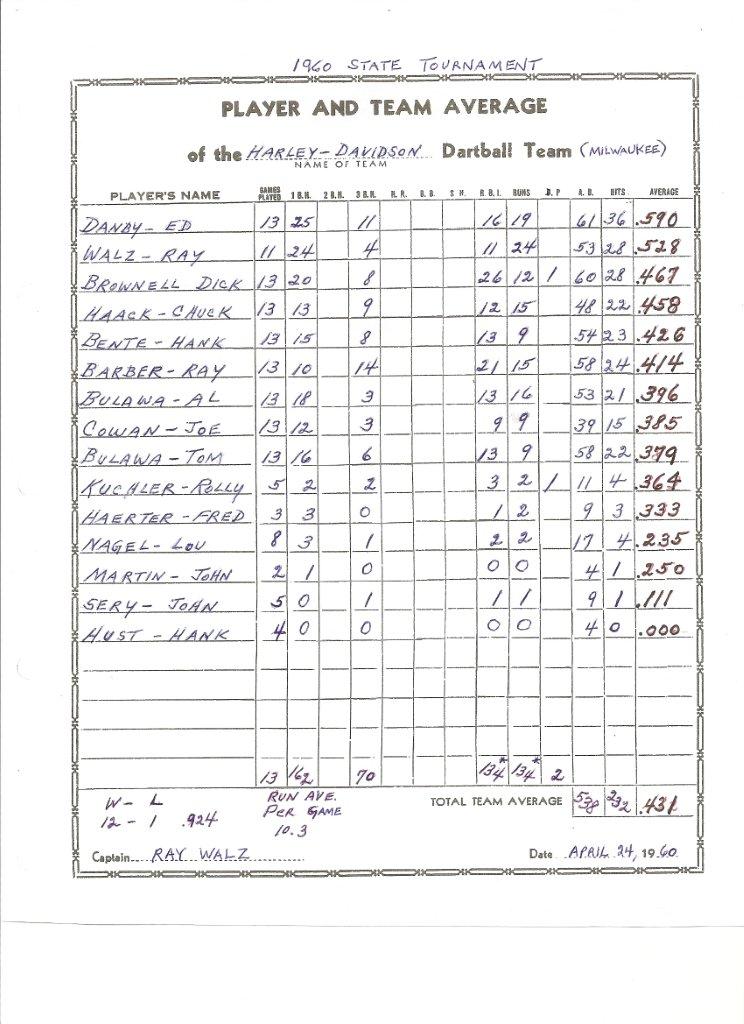 1960 STATE TOURNAMENT
PLAYER AND TEAM AVERAGE
of the HARLEY-DAVIDSON Dartball Team (MILWAUKEE)
NAME OF TEAM
PLAYER'S NAME GAMES PLAYED 1 B.H. 2 B.H. 3 B.H. H.R. B.B. S H. R.B.I. RUNS D.P A.B. HITS AVERAGE
DANDY-ED 13 25 11 16 19 61 36 .590
WALZ-RAY 11 24 4 11 24 53 28 .528
BROWNELL DICK 13 20 8 26 12 1 60 28 .467
HAACK-CHUCK 13 13 9 12 15 48 22 .458
BENTE-HANK 13 15 8 13 9 54 23 .426
BARBER-RAY 13 10 14 21 15 58 24 .414
BULAWA-AL 13 18 3 13 16 53 21 .396
COWAN-JOE 13 12 3 9 9 39 15 .385
BULAWA-TOM 13 16 6 13 9 58 22 .379
KUCHLER-ROLLY 5 2 2 3 2 1 11 4 .364
HAERTER-FRED 3 3 0 1 2 9 3 .333
NAGEL-LOU 8 3 1 2 2 17 4 .235
MARTIN-JOHN 2 1 0 0 0 4 1 .250
SERY-JOHN 5 0 1 1 1 9 1 .111
HUST-HANK 4 0 0 0 0 4 0 .000
13 162 70 134* 134* 2
W-L RUN AVE. TOTAL TEAM AVERAGE 538 232 .431
12-1 .924 PER GAME
10.3
Captain RAY WALZ Date APRIL 24, 1960